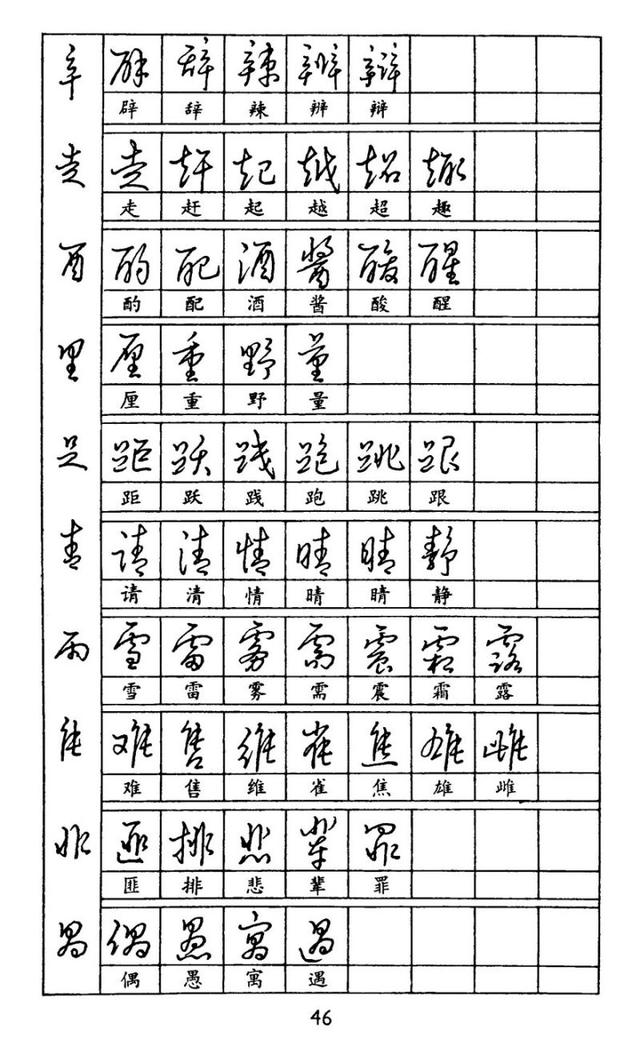 辛 辟 辞 辣 辨 辩
辟 辞 辣 辨 辩
走 走 赶 起 越 超 趣
走 赶 起 越 超 趣
酉 酌 配 酒 酱 酸 醒
酌 配 酒 酱 酸 醒
里 厘 重 野 量
厘 重 野 量
足 距 跃 践 跑 跳 跟
距 跃 践 跑 跳 跟
青 请 清 情 晴 睛 静
请 清 情 晴 睛 静
雨 雪 雷 雾 需 震 霜 露
雪 雷 雾 需 震 霜 露
隹 难 售 维 雀 焦 雄 雌
难 售 维 雀 焦 雄 雌
非 匪 排 悲 辈 罪
匪 排 悲 辈 罪
禺 偶 愚 寓 遇
偶 愚 寓 遇
46